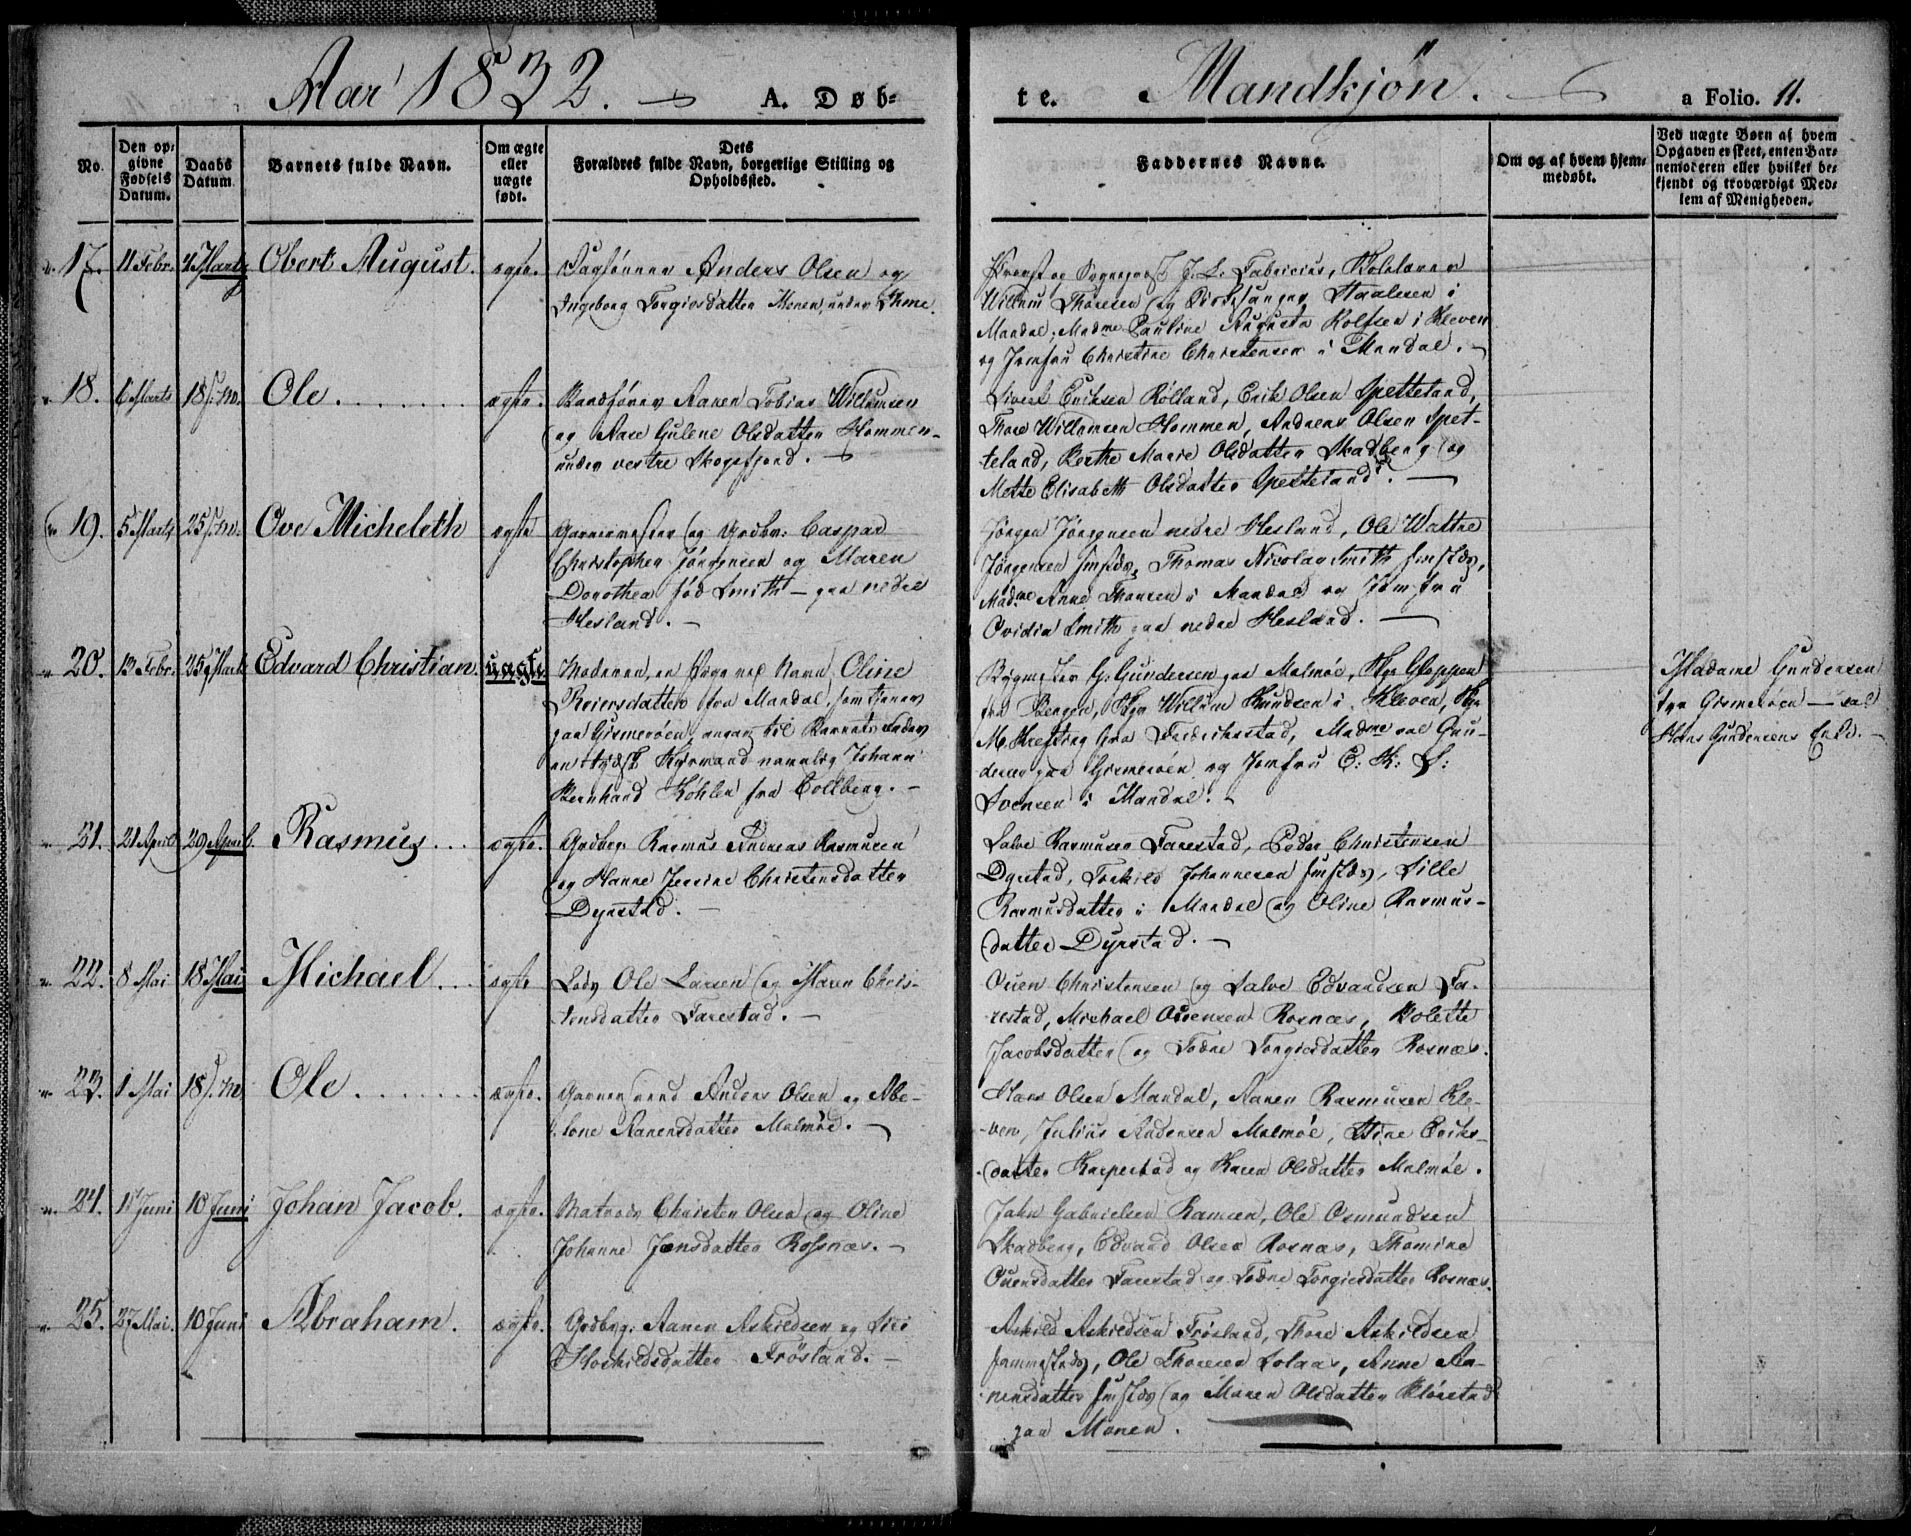 Aar 1832. A. Døb-
te. Mandkjøn. a Folio. 11.
No.
Den op-
givne
Fødsels
Datum.
Daabs
Datum
Barnets fulde Navn.
Om ægte
eller
uægte
født.
Dets
Forældres fulde Navn, borgerlige Stilling og
Opholdssted.
Faddernes Navne.
Om og af hvem hjem-
medøbt.
Ved uægte Børn af hvem
Opgaven er skeet, enten Bar-
nemoderen eller hvilket be-
kjendt og troværdigt Med-
lem af Menigheden.
17. 11 Febr. 4 Marts Obert August. ægte.
Anders Olsen og
Ingeborg Torgiersdatter Monen, under Ihme.
Provst og Sognepræst J. L. Fabricius,
Willum Thorsen og Kirkesanger Staalesen i
Mandal, Madme Pauline Augusta Rolfsen i Kleven
og Jomfru Christine Christensen i Mandal.
18. 6 Marts 18 s. M. Ole. ægte.
Aanen Tobias Willumsen
og Aase Gulene Olsdatter Hommen
under vestre Skogsfjord.
Sivert Eriksen Rølland, Erik Olsen Spetteland,
Thore Willumsen Hommen, Andreas Olsen Spet-
teland, Berthe Marie Olsdatter Skadberg og
Mette Elisabeth Olsdatter Spetteland.
19. 5 Marts 25 s. M. Ove Micheleth ægte
og Grdbr. Caspar
Christopher Jörgensen og Maren
Dorothea fød Smith - paa nedre
Hesland.
Jörgen Jörgensen nedre Hesland, Ole Wattne
Jörgensen smstds, Thomas Nicolay Smith smstds,
Madme Anne Thorsen i Mandal og Jomfru
Ovidia Smith paa nedre Hesland.
20. 13 Febr. 25 Marts Edvard Christian. uægte
Moderen, en Pige ved Navn Oline
Reiersdatter fra Mandal, som tjener
paa Gismerøen, angav til Barnets Fader
en tydsk Kjøbmand navnlig Johann
Bernhard Köhler fra Collberg.
G. Gundersen paa Malmøe, Gloppen
fra Bergen, Willum Knudsen i Kleven,
M. Krefting fra Frederikstad, Madme sal Gun-
dersen paa Gismerøen og Jomfru C: K: S:
Svensen i Mandal.
Madame Gundersen
paa Gismerøen - sal
Hans Gundersens Enke.
21. 21 April 29 April. Rasmus ægte.
Grdbrg: Rasmus Andreas Rasmusen
og Hanne Jersine Christensdatter
Dyrstad.
Salve Rasmusen Farestad, Peder Christensen
Dyrstad, Torkild Johannesen smstds, Sille
Rasmusdatter i Mandal og Oline Rasmus-
datter Dyrstad.
22. 8 Mai 18 Mai Michael ægte
Lods Ole Larsen og Maren Chris-
tensdatter Farestad.
Ouen Christensen og Salve Edvardsen Fa-
restad, Michael Ouensen Rosnæs, Bolette
Jacobsdatter og Todne Torgiersdatter Rosnæs.
23. 1 Mai 18 s. M. Ole ægte.
Anders Olsen og Abe-
lone Aanensdatter Malmöe.
Hans Olsen Mandal, Aanen Rasmusen Kle-
ven, Julius Andersen Malmöe, Stine Eriks-
datter Harpestad og Karen Olsdatter Malmöe.
24. 1 Juni 10 Juni Johan Jacob. ægte.
Matrods Christen Olsen og Oline
Johanne Jensdatter Rosnæs.
John Gabrielsen Ramsen, Ole Osmundsen
Skadberg, Edvard Olsen Rosnæs, Thomine
Ouensdatter Farestad og Todne Torgiersdatter Rosnæs.
25. 27 Mai. 10 Juni Abraham. ægte.
Grdbrg: Aanen Askildsen og Siri
Hoskildsdatter Frösland.
Askild Askildsen Frösland, Thore Askildsen
sammestds, Ole Thorsen Solaas, Anne Aa-
nensdatter smstds og Maren Olsdatter
paa Monen.